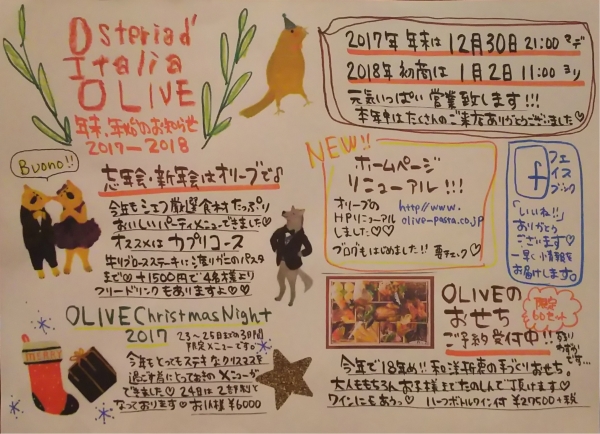 Osteria d'
Italia
OLIVE
年末、年始のお知らせ
2017-2018
2017年 年末は 12月30日 21:00 マデ
2018年 初商は 1月2日 11:00 ヨリ
元気いっぱい 営業致します!!!
本年中はたくさんのご来店ありがとうございました♡
Buono!!
忘年会・新年会はオリーブで♪
今年もシェフ厳選食材たっぷり
おいしいパーティメニューできました♡
オススメは カプリコース
牛リブロースステーキに渡りガニのパスタ
まで♡ +1500円で4名様より
フリードリンクもありますよ♡♡
NEW!!
ホームページ
リニューアル!!!
オリーブの http://www.
HPリニューアル olive-pasta.co.jp
しました♡♡
ブログもはじめました!! 要チェック♡
フェ
イス
ブック
f
「いいね!!」
ありがとう
ございます♡
一早く情報を
お届けします。
OLIVE Christmas Night
2017
23~25日までの3日間
限定メニューです。
今年もとってもステキなクリスマスを
過ごす為にとっておきのメニューが
できました♡ 24日は2部制と
なっております♡ お1人様 ¥6000
MERRY
OLIVEの
おせち
限定
60セット
ご予約受付中!!
残り
わずかです...
今年で18年め!! 和洋折衷の手づくりおせち。
大人ももちろんお子様までたのしんで頂けます♡
ワインにもあうっ♡ ハーフボトルワイン付 ¥27500+税